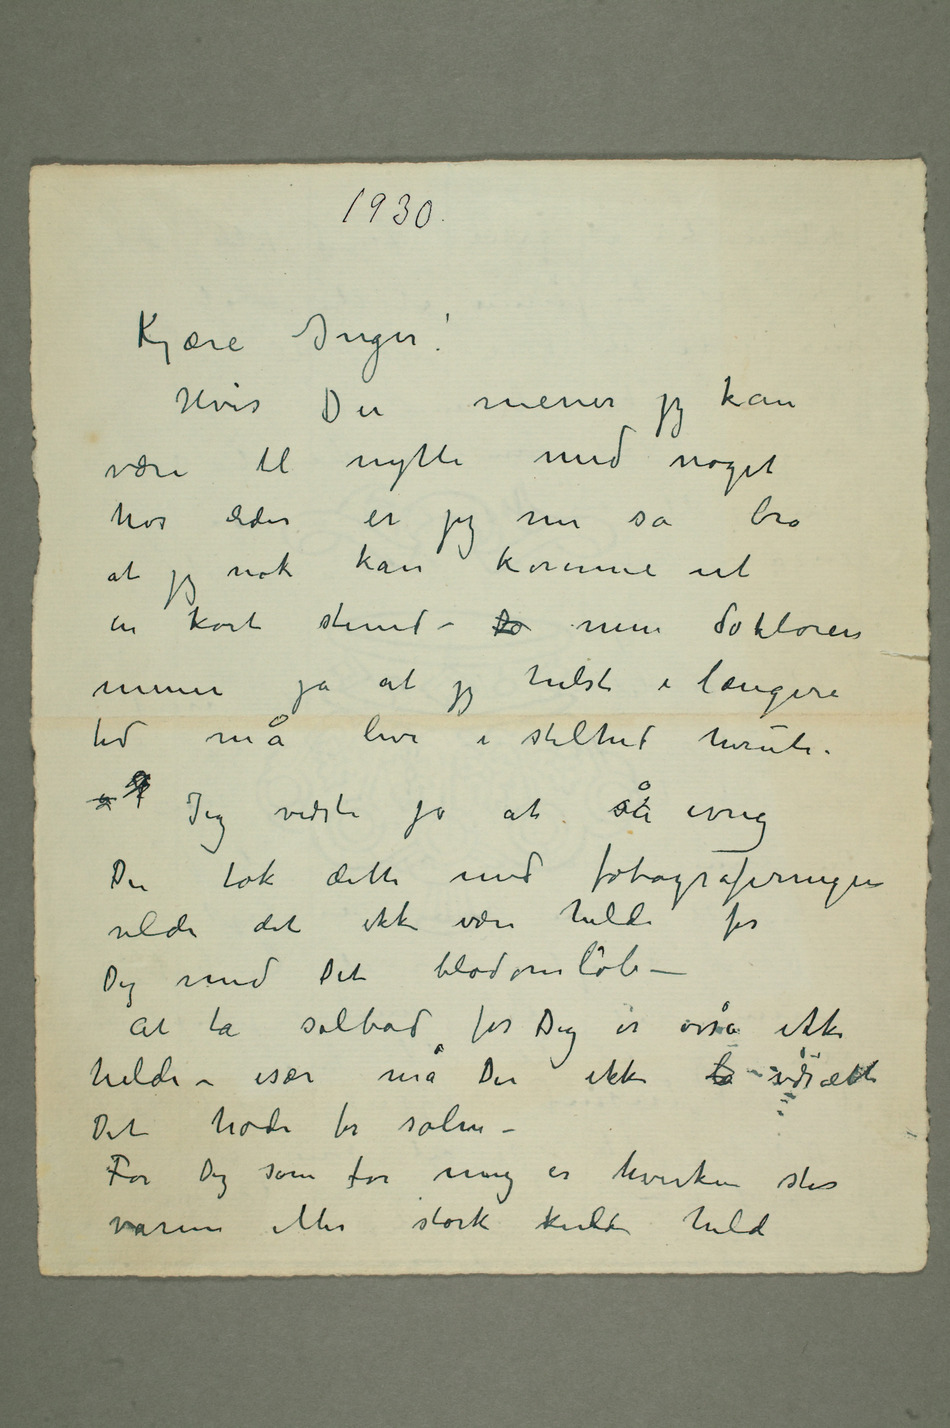 1930.
Kjære Inger!
Hvis Du mener jeg kan
være til nytte med noget
hos eder er jeg nu så bra
at jeg nok kan komme ut
en kort stund – men doktoren
mener ja at jeg helst i længere
tid må leve i stilhed herute.
Jeg vidste jo at så ivrig
Du tok dette med fotograferingen
vilde det ikke være heldi for
Dig med Dit blodomløb –
At ta solbad for Dig er også ikke
heldi – især må Du ikke udsætte
Dit hode for solen –
For Dig som for mig er hverken stor
varme eller stærk kulde held